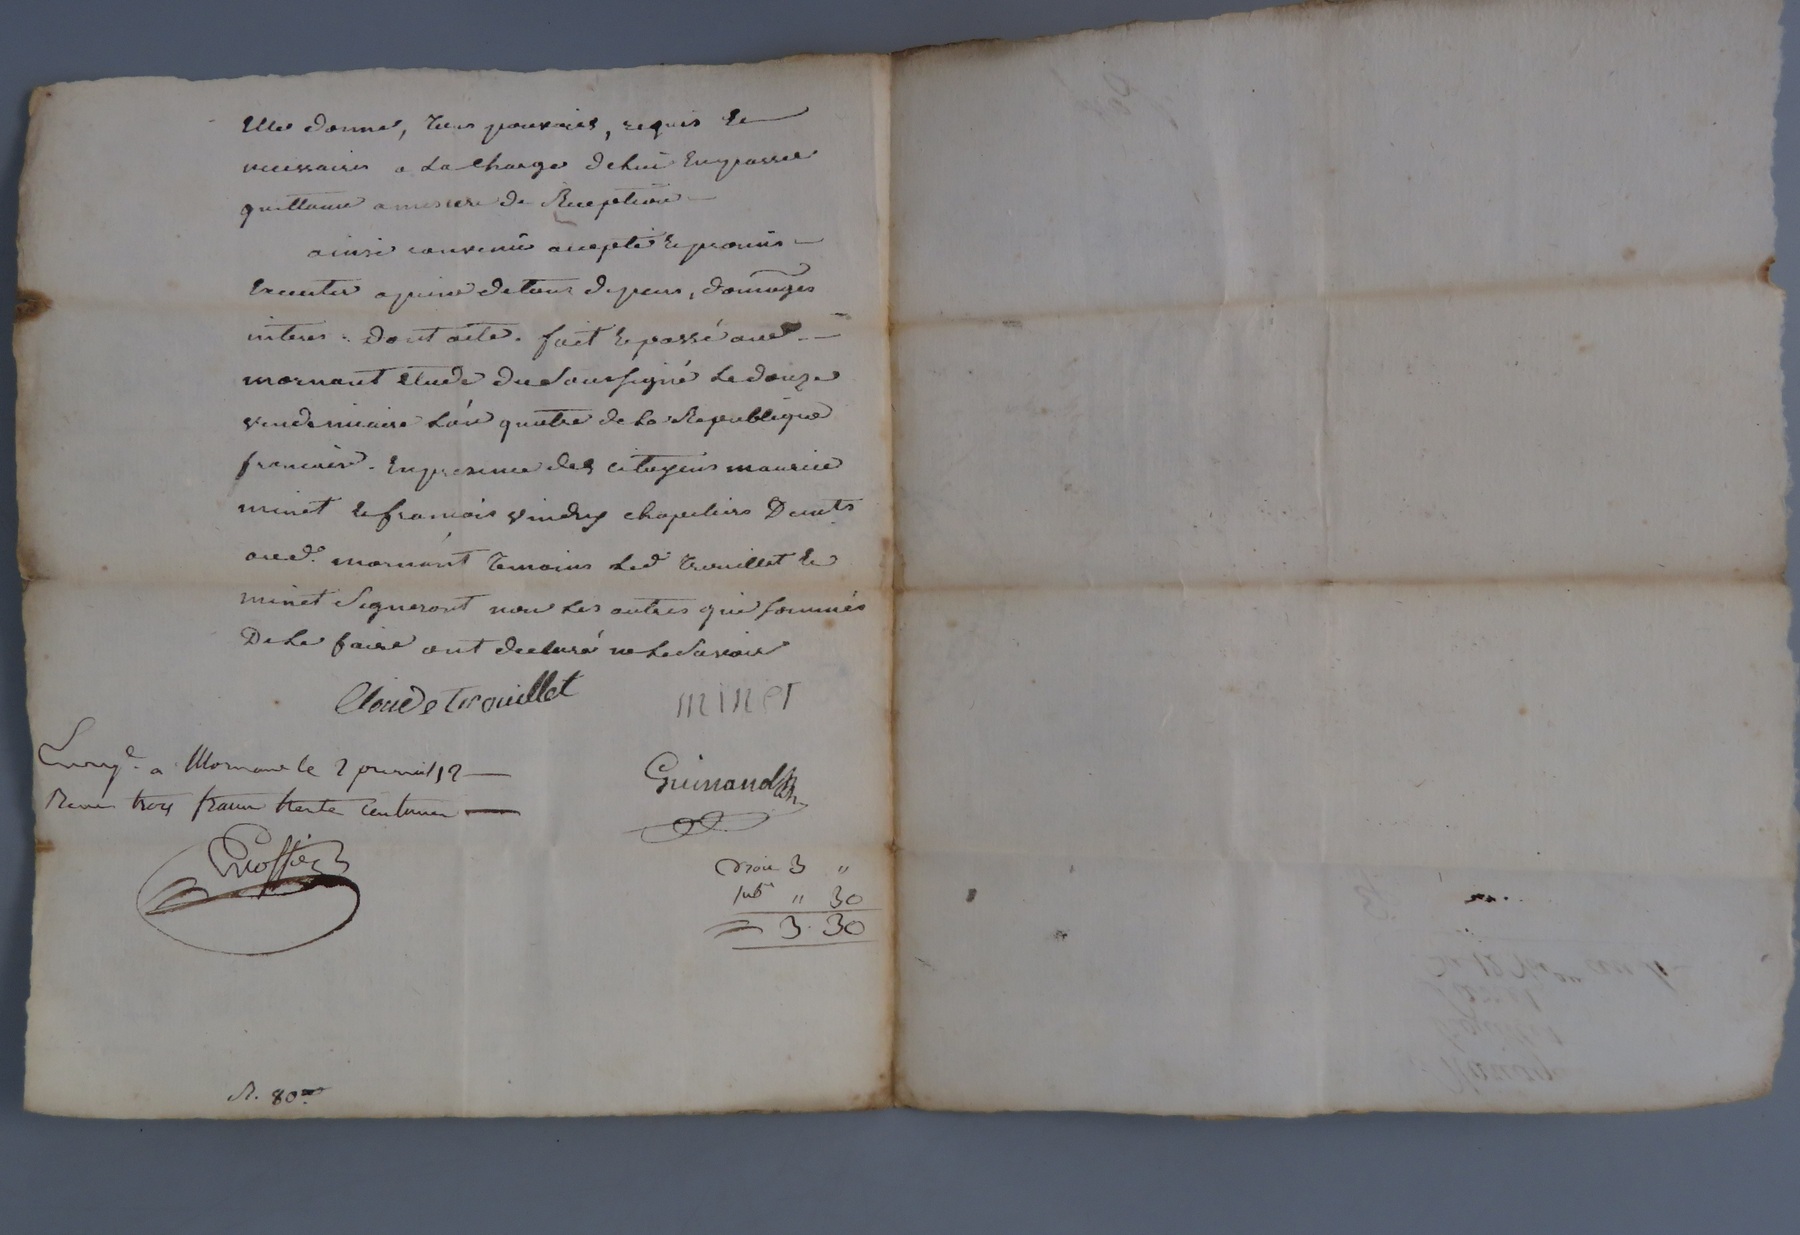 Elle donne, tous pouvoirs, requis Et
necessaires a La Charge de lui En passer
quittance a mesure de Reception
ainsi convenu accepté Et promis
Executer a peine de tous depens, domages
interes. Dont acte. fait Et passé aud.
mornant étude du Soussigné Le douze
vendemiaire L'an quatre de La Republique
francaise. En presence des citoyens maurice
minet Et francois vindry chapeliers Demts
aud. mornant Temoins Led Trouillet Et
minet Signeront non Les autres qui sommés
De Le faire ont declaré ne Le Savoir
Claude trouillet
minet
Enregé. a Mornant le 2
Recu trois francs trente centimes
Guinand
Droit 3 "
sub " 30
3. 30
R. 80